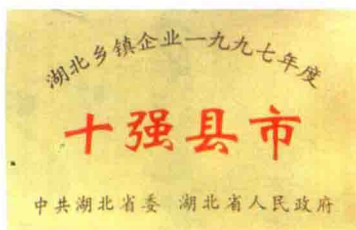 湖北乡镇企业一九九七年度
十强县市
中共湖北省委 湖北省人民政府